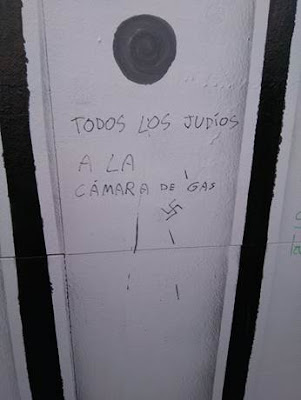 TODOS LOS JUDÍOS
A LA
CÁMARA DE GAS